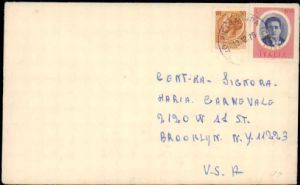 ITALIA
GENT.MA SIGNORA.
MARIA CARNEVALE
2120 W 11 ST.
BROOKLYN. N.Y 11223
U.S.A